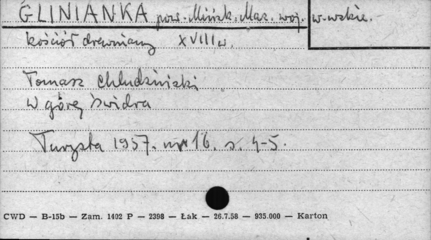 GLINIANKA pow. Mińsk. Maz. woj. w-wskie.
kościół drewniany XVIII w.
Tomasz Chludziński
W górę Świdra
Turysta 1957. nr 16. s. 4-5.
CWD — B-15b — Zam. 1402 P — 2398 — Łak — 26.7.58 — 935.000 — Karton